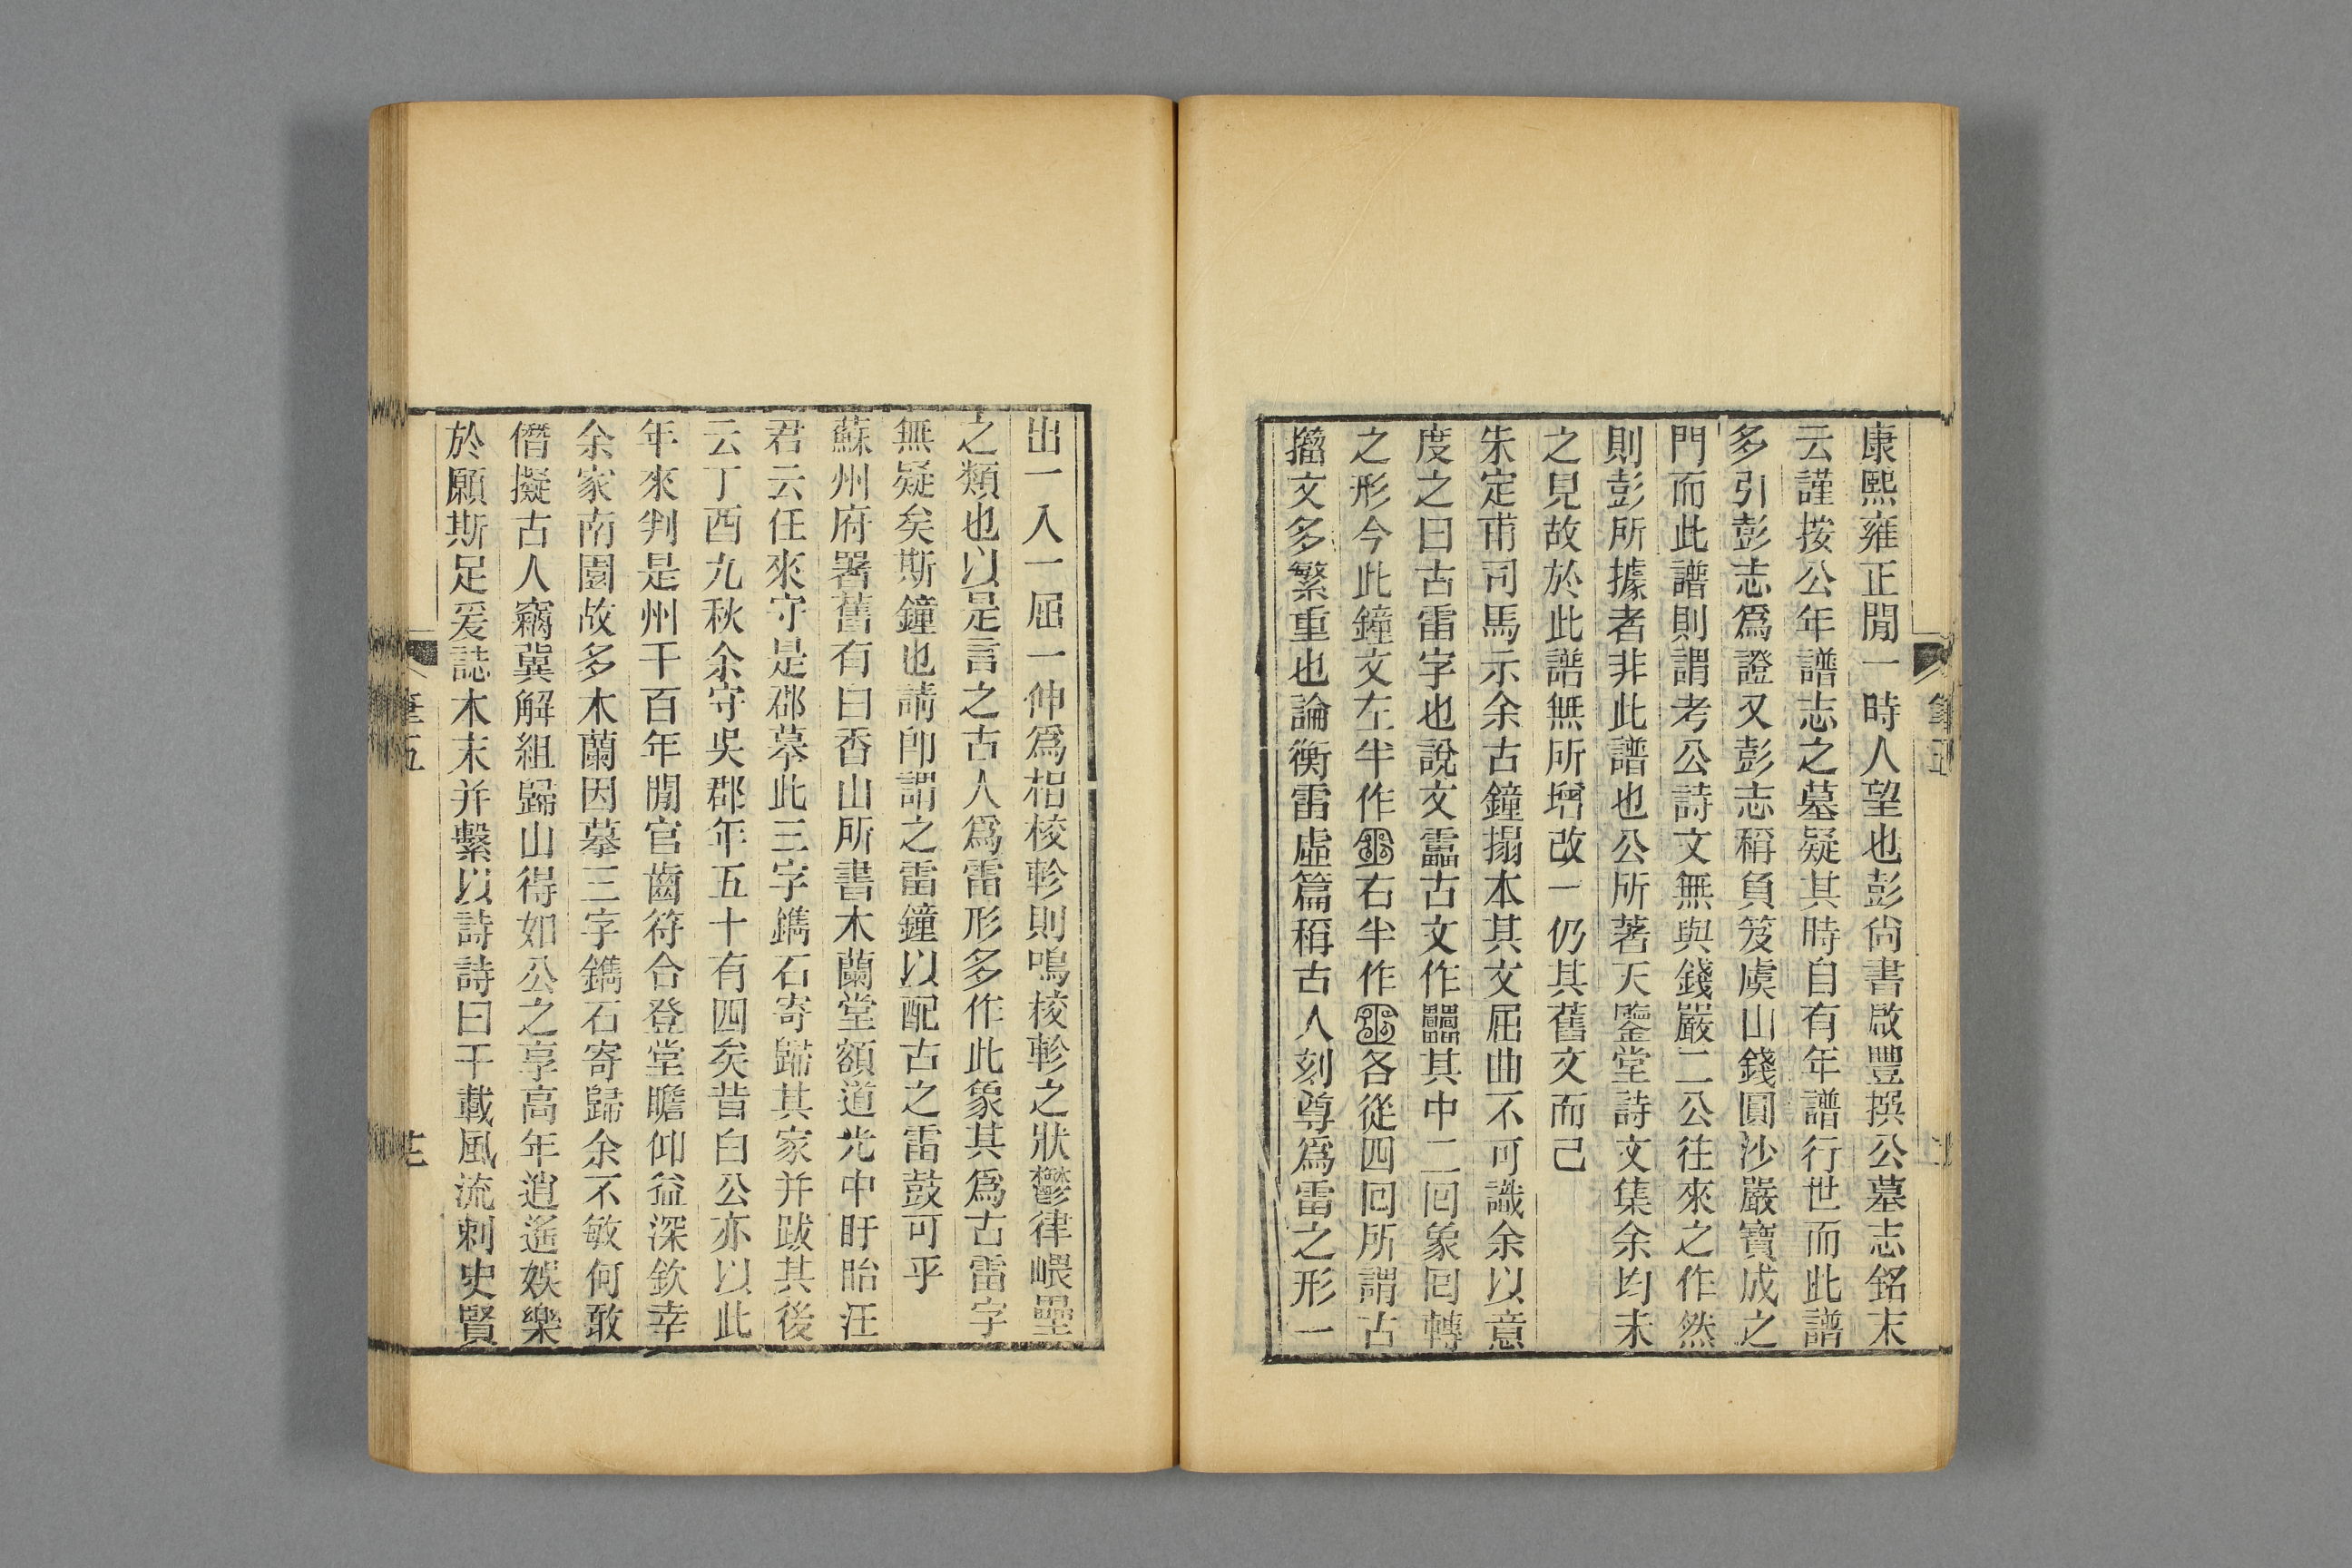 康熙雍正閒一時人望也彭尙書啟豐撰公墓志銘末
云謹按公年譜志之墓疑其時自有年譜行世而此譜
多引彭志爲證又彭志稱負笈虞山錢圓沙嚴寶成之
門而此譜則謂考公詩文無與錢嚴二公往來之作然
則彭所據者非此譜也公所著天鑒堂詩文集余均未
之見故於此譜無所增改一仍其舊文而已
朱定甫司馬示余古鐘搨本其文屈曲不可識余以意
度之曰古雷字也說文靁古文作䨻其中二回象回轉
之形今此鐘文左半作右半作各從四回所謂古
籀文多繁重也論衡雷虛篇稱古人刻尊爲雷之形一
出一入一屈一伸爲相校軫則鳴校軫之狀鬱律㟪壘
之類也以是言之古人爲雷形多作此象其爲古雷字
無疑矣斯鐘也請卽謂之雷鐘以配古之雷鼓可乎
蘇州府署舊有白香山所書木蘭堂額道光中盱眙汪
君云任來守是郡摹此三字鐫石寄歸其家并跋其後
云丁酉九秋余守吳郡年五十有四矣昔白公亦以此
年來判是州千百年閒官齒符合登堂瞻仰益深欽幸
余家南園故多木蘭因摹三字鐫石寄歸余不敏何敢
僭擬古人竊冀解組歸山得如公之享高年逍遙娛樂
於願斯足爰誌木末并繫以詩詩曰千載風流刺史賢
筆五